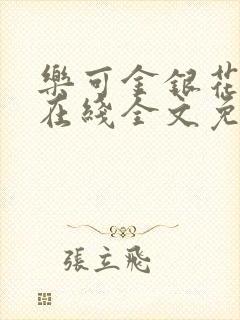 樂可金銀花
在綫全文免
張立飛